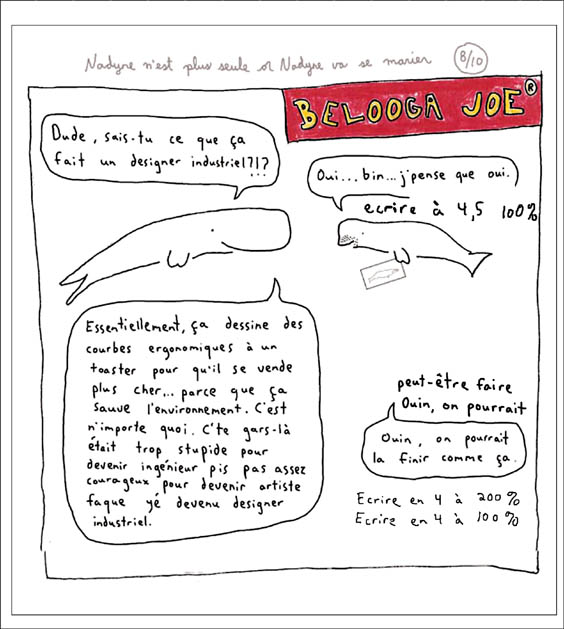 Nadyne n'est plus seule or Nadyne va se marier 8/10
BELOOGA JOE ®
Dude, sais-tu ce que ça
fait un designer industriel?!?
!?
Oui...bin...j'pense que oui.
ecrire à 4,5 100%
Essentiellement, ça dessine des
courbes ergonomiques à un
toaster pour qu'il se vende
plus cher... parce que ça
sauve l'environnement. C'est
n'importe quoi. C'te gars-là
était trop stupide pour
devenir ingénieur pis pas assez
courageux pour devenir artiste
faque yé devenu designer
industriel.
peut-être faire
Ouin, on pourrait
Ouin, on pourrait
la finir comme ça.
Ecrire en 4 à 200%
Ecrire en 4 à 100%